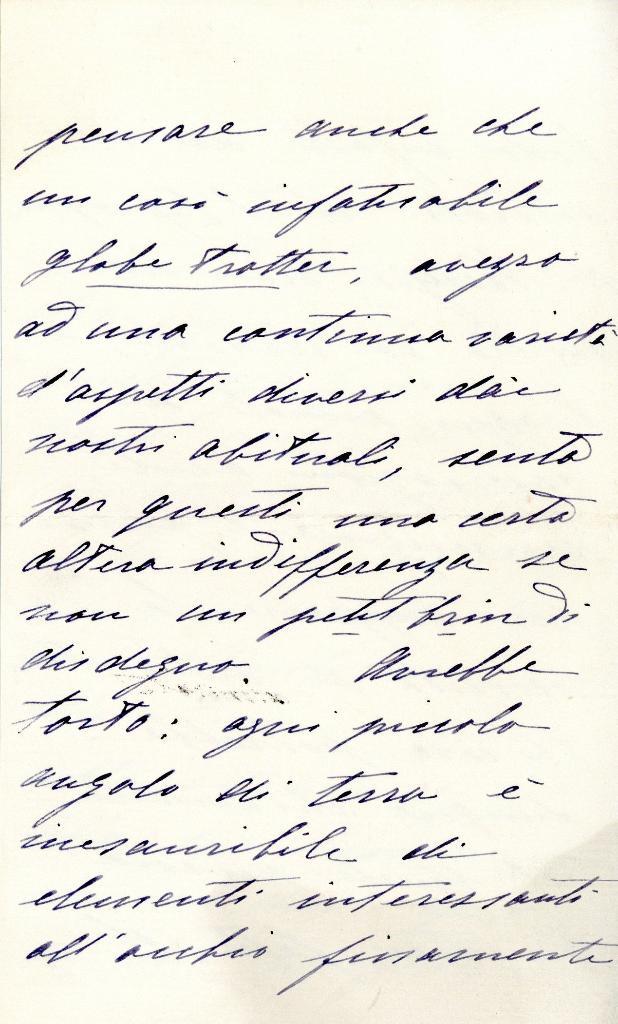 pensare anche che
un così infaticabile
globe trotter, avezzo
ad una continua varietà
d'aspetti diversi dai
nostri abituali, senta
per questi una certa
altera indifferenza se
non un petit brin di
disdegno. Avrebbe
torto: ogni piccolo
angolo di terra è
inesauribile di
elementi interessanti
all'occhio finamente